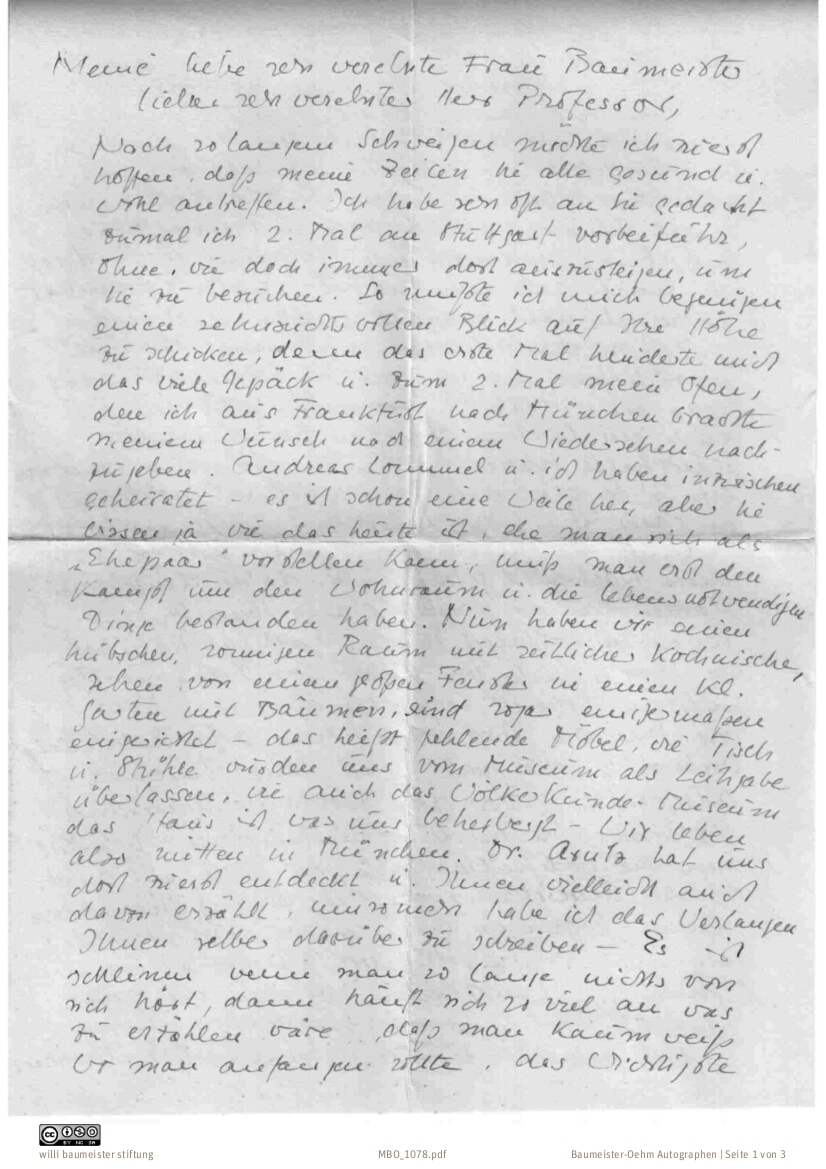 Meine liebe sehr verehrte Frau Baumeister
lieber sehr verehrter Herr Professor,
Nach so langem Schweigen möchte ich zuerst
hoffen, daß meine Zeilen Sie alle gesund u.
wohl antreffen. Ich habe sehr oft an Sie gedacht
zumal ich 2. Mal an Stuttgart vorbeifuhr,
ohne, wie doch immer dort auszusteigen, um
Sie zu besuchen. So mußte ich mich begnügen
einen sehnsichtsvollen Blick auf Ihre Höhe
zu schicken, denn das erste Mal hinderte mich
das viele Gepäck u. zum 2. Mal mein Ofen,
den ich aus Frankfurt nach München brachte
meinem Wunsch nach einem Wiedersehen nach-
zugeben. Andreas Lommel u. ich haben inzwischen
geheiratet – es ist schon eine Weile her, aber Sie
wissen ja wie das heute ist, ehe man sich als
„Ehepaar" vorstellen kann, muß man erst den
Kampf um den Wohnraum u. die lebensnotwendigen
Dinge bestanden haben. Nun haben wir einen
hübschen, sonnigen Raum mit seitlicher Kochnische,
sehen von einem großen Fenster in einen kl.
Garten mit Bäumen, sind sogar einigermaßen
eingerichtet – das heißt fehlende Möbel, wie Tisch
u. Stühle wurden uns vom Museum als Leihgabe
überlassen, wie auch das Völkerkunde-Museum
das Haus ist was uns beherbergt – Wir leben
also mitten in München. Dr. Arntz hat uns
dort zuerst entdeckt u. Ihnen vielleicht auch
davon erzählt, umsomehr habe ich das Verlangen
Ihnen selber darüber zu schreiben – Es ist
schlimm wenn man so lange nichts von
sich hört, dann häuft sich so viel an was
zu erzählen wäre, daß man kaum weiß
wo man anfangen sollte, das Wichtigste
willi baumeister stiftung
MBO_1078.pdf
Baumeister-Oehm Autographen | Seite 1 von 3